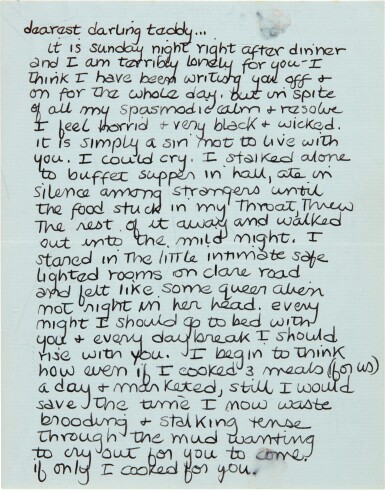 dearest darling teddy...
it is sunday night right after dinner
and I am terribly lonely for you - I
think I have been writing you off +
on for the whole day. but in spite
of all my spasmodic calm + resolve
I feel horrid + very black + wicked.
it is simply a sin not to live with
you. I could cry. I stalked alone
to buffet supper in hall, ate in
silence among strangers until
the food stuck in my throat, threw
the rest of it away and walked
out into the mild night. I
stared in the little intimate safe
lighted rooms on clare road
and felt like some queer alien
not right in her head. every
night I should go to bed with
you + every daybreak I should
rise with you. I begin to think
how even if I cooked 3 meals (for us)
a day + marketed, still I would
save the time I now waste
brooding + stalking tense
through the mud wanting
to cry out for you to come.
if only I cooked for you.